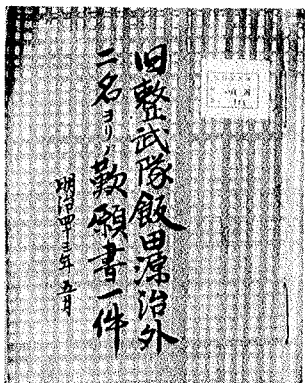 旧整武隊飯田源治外
二名ヨリノ歎願書一件
明治四十三年五月